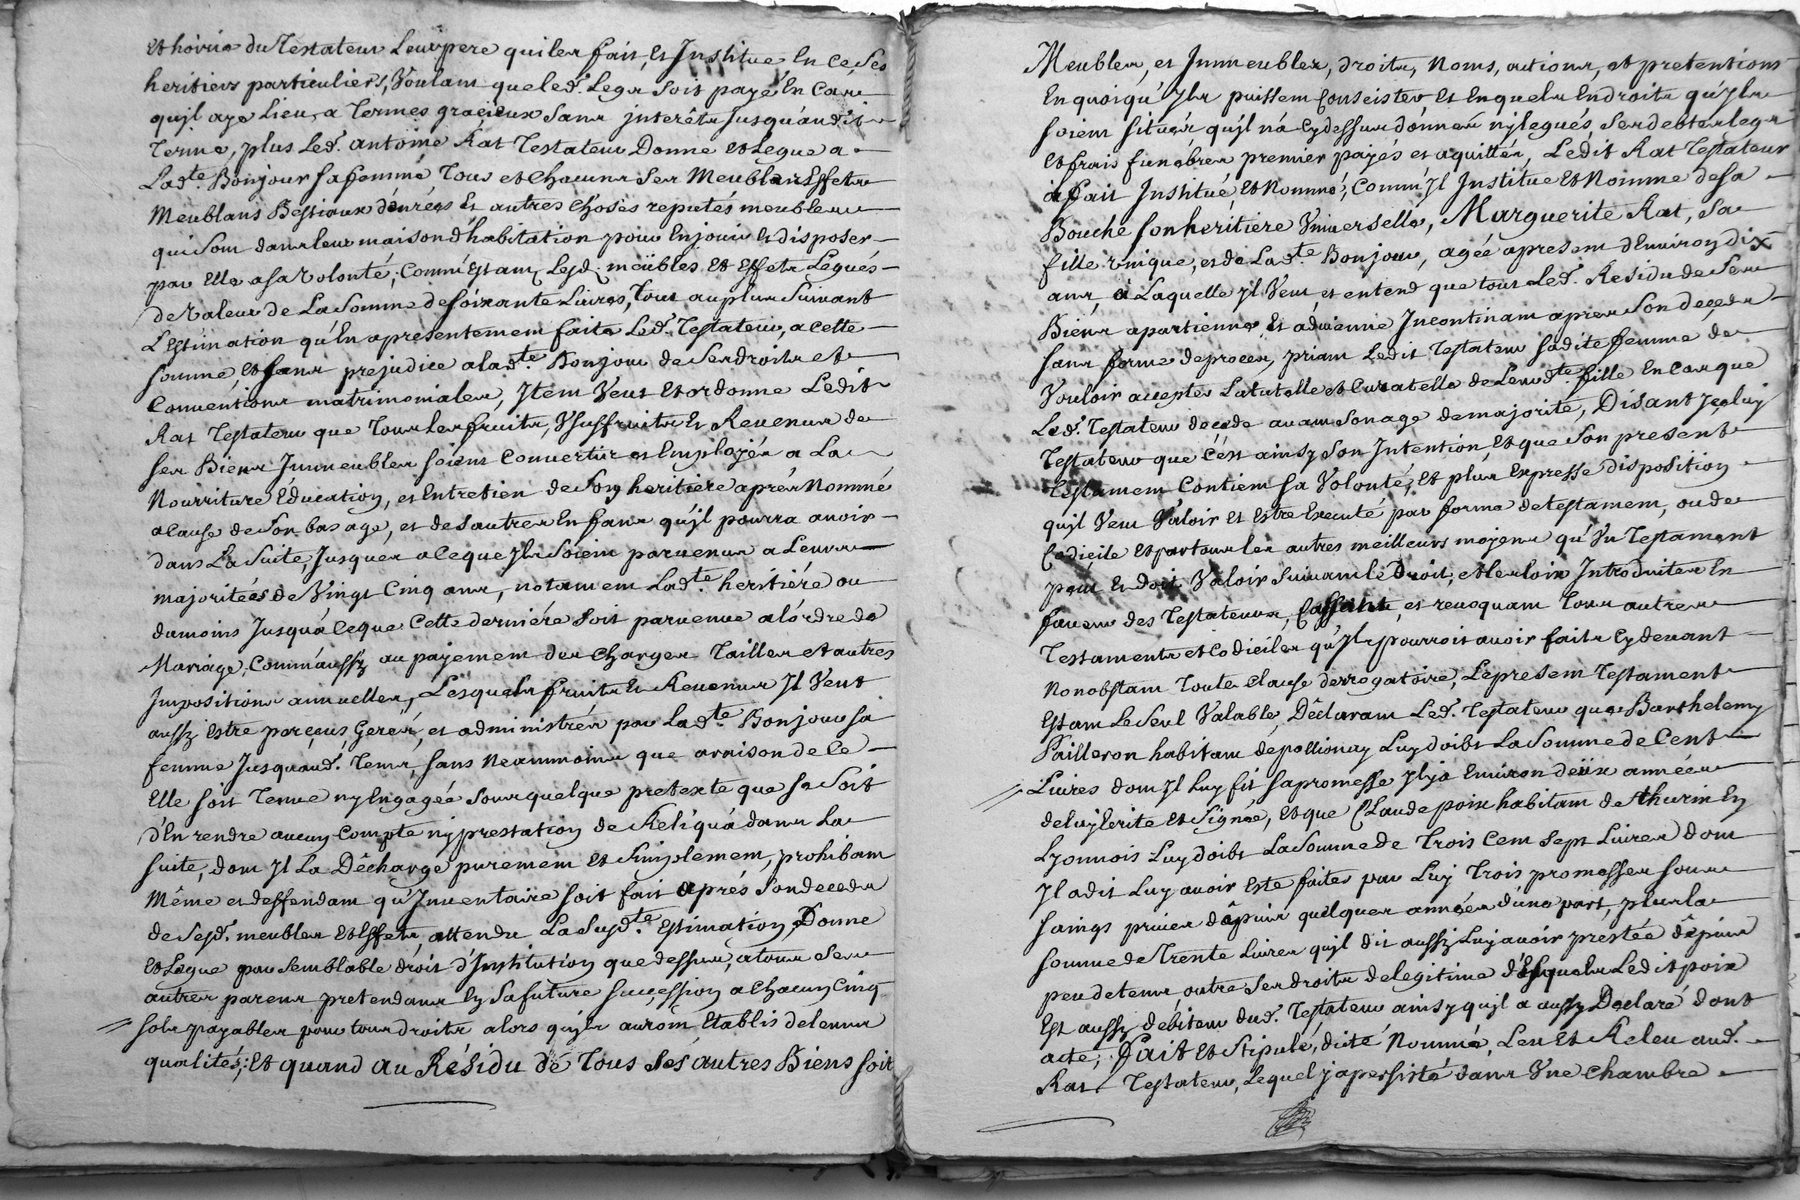 et hoirie du Testateur Leur pere qui les fait, et Institue En ce, ses
heritiers particuliers, Voulant que led. Legs soit payé En Cas
qu'jl aye Lieu, a Termes gracieux sans jnterêts jusqu'audit
Terme, plus Led. antoine Rat Testateur Donne et Legue a
Lad.te Bonjour sa femme Tous et chacuns ses Meubles Effets
Meublans Bestiaux dénrées et autres choses reputés meubles
qui sont dans leur maison d'habitation pour En jouir et disposer
par Elle a sa Volonté, Comm'Estant Lesd. meübles et Effets Legués
de Valeur de La somme de soixante Livres, Tout au plus Suivant
L'Estimation qu'En a presentement faite Led. Testateur, a cette
somme, et sans prejudice a lad.te Bonjour de ses droits et
Conventions matrimoniales, Jtem Veut et ordonne Ledit
Rat Testateur que Tous les fruits, Usuffruits et Revenus de
ses Biens Jmmeubles soient Convertis et Employés a La
Nourriture Education, et Entretien de son heritiere aprés Nommé
a Cause de son bas age, et des autres Enfans qu'jl pourra avoir
dans La Suite, Jusques a ce que jls soient parvenus a Leurs
majoritées de Vingt Cinq ans, notament Lad.te heritiére ou
dumoins Jusqu'a ce que Cette derniére soit parvenue a l'ordre de
Mariage, Comm'aussy au payement des charges Tailles et autres
Jmpositions annuelles, Lesquels fruits et Revenus Jl Veut
aussy Estre perçeus Gerés, et administrés par Lad.te Bonjour sa
femme Jusquaud. Tems, sans Neammoins que araison de Ce
Elle soit Tenue ny Engagée sous quelque pretexte que se soit
d'En rendre aucun Compte ny prestation de Reliquá dans La
suite, dont Jl La Décharge purement et Simplement, prohibant
Même et deffendant qu'Jnventaire soit fait aprés son deceds
de Sesd. meubles et Effets, attendu La Susd.te Estimation, Donne
et Legue par semblable droit d'Jnstitution que dessus, a tous ses
autres parens pretendans En Sa future succession a chacun Cinq
sols payables pour tous droits alors qu'jls auront Etablis de leurs
qualités; Et quand au Résidu de Tous ses autres Biens soit
Meubles, et Jmmeubles, droits, Noms, actions, et pretentions
En quoi qu'Jls puissent Conseister, et En quels Endroits qu'Jls
soient situés qu'jl n'a Cy dessus donnés ny legués, ses debtes legs
et frais funebres premier payés et aquittés, Ledit Rat Testateur
a fait Jnstitué, et Nommé, Comm'Jl Jnstitue et Nomme de sa
Bouche son heritiere Universelle, Marguerite Rat, sa
fille unique, et de Lad.te Bonjour, agée apresent d'Environ dix
ans a Laquelle Jl Veut et entend que tout Led. Residu de Ses
Biens apartienne, et advienne Jncontinant apres son deceds
sans forme de procès, priant Ledit Testateur sadite femme de
Vouloir accepter La tutelle et Curatelle de Leurd.te fille En cas que
Led. Testateur deçede avant son age de majorité, Disant jceluy
Testateur que c'est ainsy son Jntention, et que son present
Testament Contient sa Volonté, et plus Expresse disposition
qu'jl Veut Valoir et Estre Executé par forme de testament, ou de
Codiçile et par tous les autres meilleurs moyens qu'Un Testament
peut et doit Valoir Suivant le Droit, et les loix Jntroduites En
faveur des Testateurs, Cassant, et revoquant Tous autres
Testaments et Codiciles qu'Jl pourroit avoir faits Cy devant
Nonobstant Toute Clause derrogatoire, Le present Testament
Estant Le Seul Valable, Déclarant Led. Testateur que Barthelemy
Pailleron habitant de pollionay Luy doibt La Somme de Cent
Livres dont Jl Luy fit sa promesse Jl y a Environ deüx années
de luy Ecrite et Signée, et que Claude poix habitant de Thurin En
Lyonnois Luy doibt La Somme de Trois Cent sept Livres dont
Jl a dit Luy avoir Esté faites par Luy Trois promesses sous
saings privés dépuis quelques années d'une part, plus la
somme de Trente Livres qu'jl dit aussy Luy avoir prestée dépuis
peu de tems, outre ses droits de legitime d'Esquels Ledit poix
Est aussy debiteur dud. Testateur ainsy qu'jl a aussy Declaré dont
acte; Fait et Stipulé, dicté Nommé, Leu et Releu aud.
Rat Testateur, Lequel y a persisté dans Une chambre